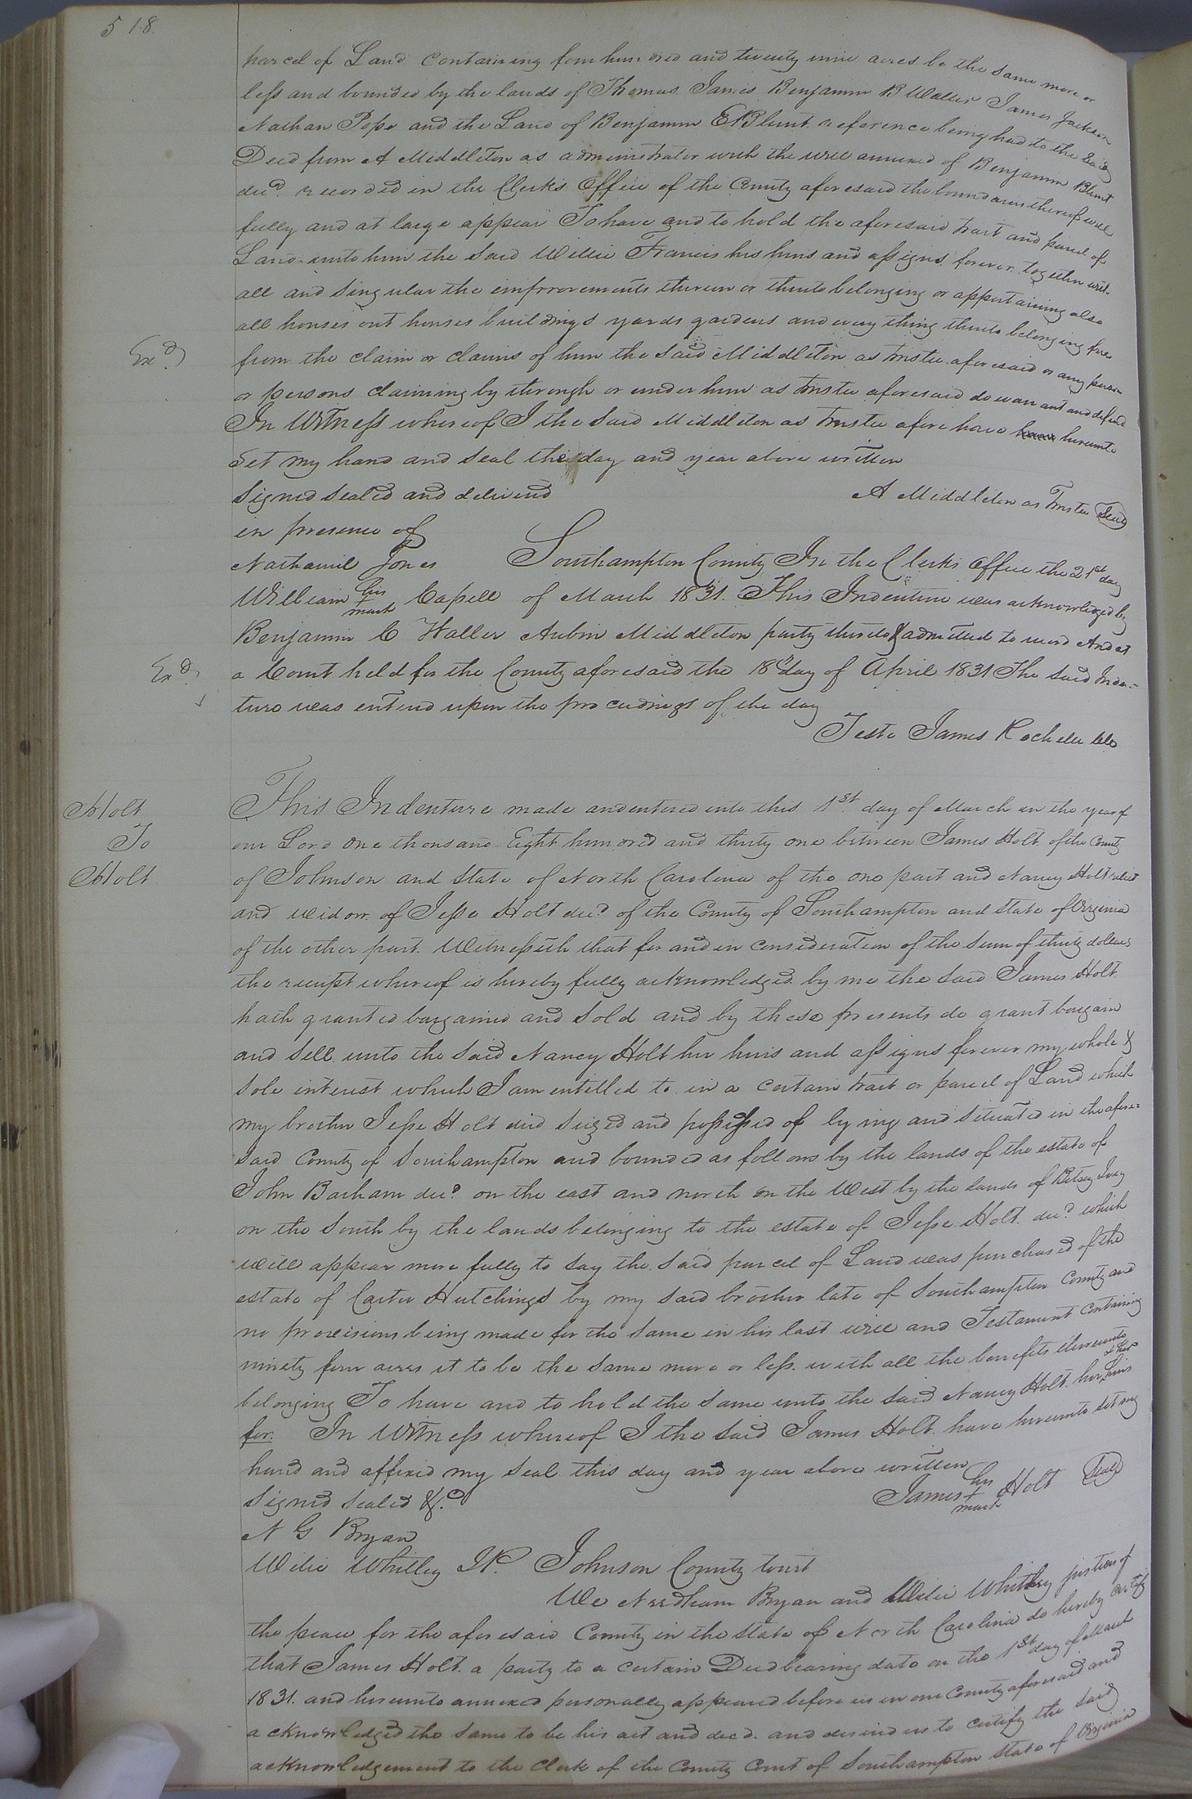 518.
parcel of Land containing four hundred and twenty nine acres be the same more or
less and bounded by the lands of Thomas James Benjamin B Waller James Jackson
Nathan Pope and the Land of Benjamin E Blunt reference being had to the said
Deed from A Middleton as administrator with the will annexed of Benjamin Blunt
decd. recorded in the Clerks office of the County aforesaid the boundaries thereof will
fully and at large appear To have and to hold the aforesaid tract and parcel of
Land unto him the said Willie Francis his heirs and assigns forever together with
all and singular the improvements thereon or thereto belonging or appertaining also
all houses out houses buildings yards gardens and every thing thereto belonging free
Exd.
from the claim or claims of him the said Middleton as trustee aforesaid or any person
or persons claiming by through or under him as trustee aforesaid do warrant and defend
In Witness whereof I the said Middleton as trustee afore have hereunto
set my hand and seal the day and year above written
signed sealed and deliverd
A Middleton as Trustee Seal
in presence of
Nathaniel Jones Southampton County In the Clerks office the 21st day
William his + mark Capell of March 1831. This Indenture was acknowledged by
Benjamin C Waller Aubin Middleton party thereto & admitted to record And at
Exd.
a Court held for the County aforesaid the 18th day of April 1831 The said Inden-
ture was entered upon the proceedings of the day
Teste James Rochelle Clo
Holt
To
Holt
This Indenture made and entered into this 1st day of March in the year of
our Lord one thousand Eight hundred and thirty one between James Holt of the County
of Johnson and State of North Carolina of the one part and Nancy Holt relict
and widow of Jesse Holt decd of the County of Southampton and State of Virginia
of the other part. Witnesseth that for and in consideration of the sum of thirty dollars
the receipt whereof is hereby fully acknowledged by me the said James Holt
hath granted bargained and sold and by these presents do grant bargain
and sell unto the said Nancy Holt her heirs and assigns forever my whole &
sole interest which I am entitled to in a certain tract or parcel of Land which
my brother Jesse Holt died seized and possessed of lying and situated in the afore-
said County of Southampton and bounded as follows by the lands of the estate of
John Barham decd. on the east and north on the West by the lands of Betsey Ivey
on the South by the lands belonging to the estate of Jesse Holt decd which
will appear more fully to say the said parcel of Land was purchased of the
estate of Carter Hutchings by my said brother late of Southampton County and
no provisions being made for the same in his last will and Testament containing
ninety four acres it to be the same more or less with all the benefits thereunto
belonging To have and to hold the same unto the said Nancy Holt her heirs
for. In Witness whereof I the said James Holt have hereunto set my
hand and affixed my seal this day and year above written
Signed sealed &c.
James his + mark Holt Seal
N G Bryan
Wilie Whitley JP. Johnson County Court
We Needham Bryan and Wilie Whitley justices of
the peace for the aforesaid County in the State of North Carolina do hereby certify
that James Holt a party to a certain Deed bearing date on the 1st day of March
1831. and hereunto annexed personally appeared before us in our County aforesaid and
acknowledged the same to be his act and deed. and desired us to certify the said
acknowledgement to the Clerk of the County Court of Southampton State of Virginia